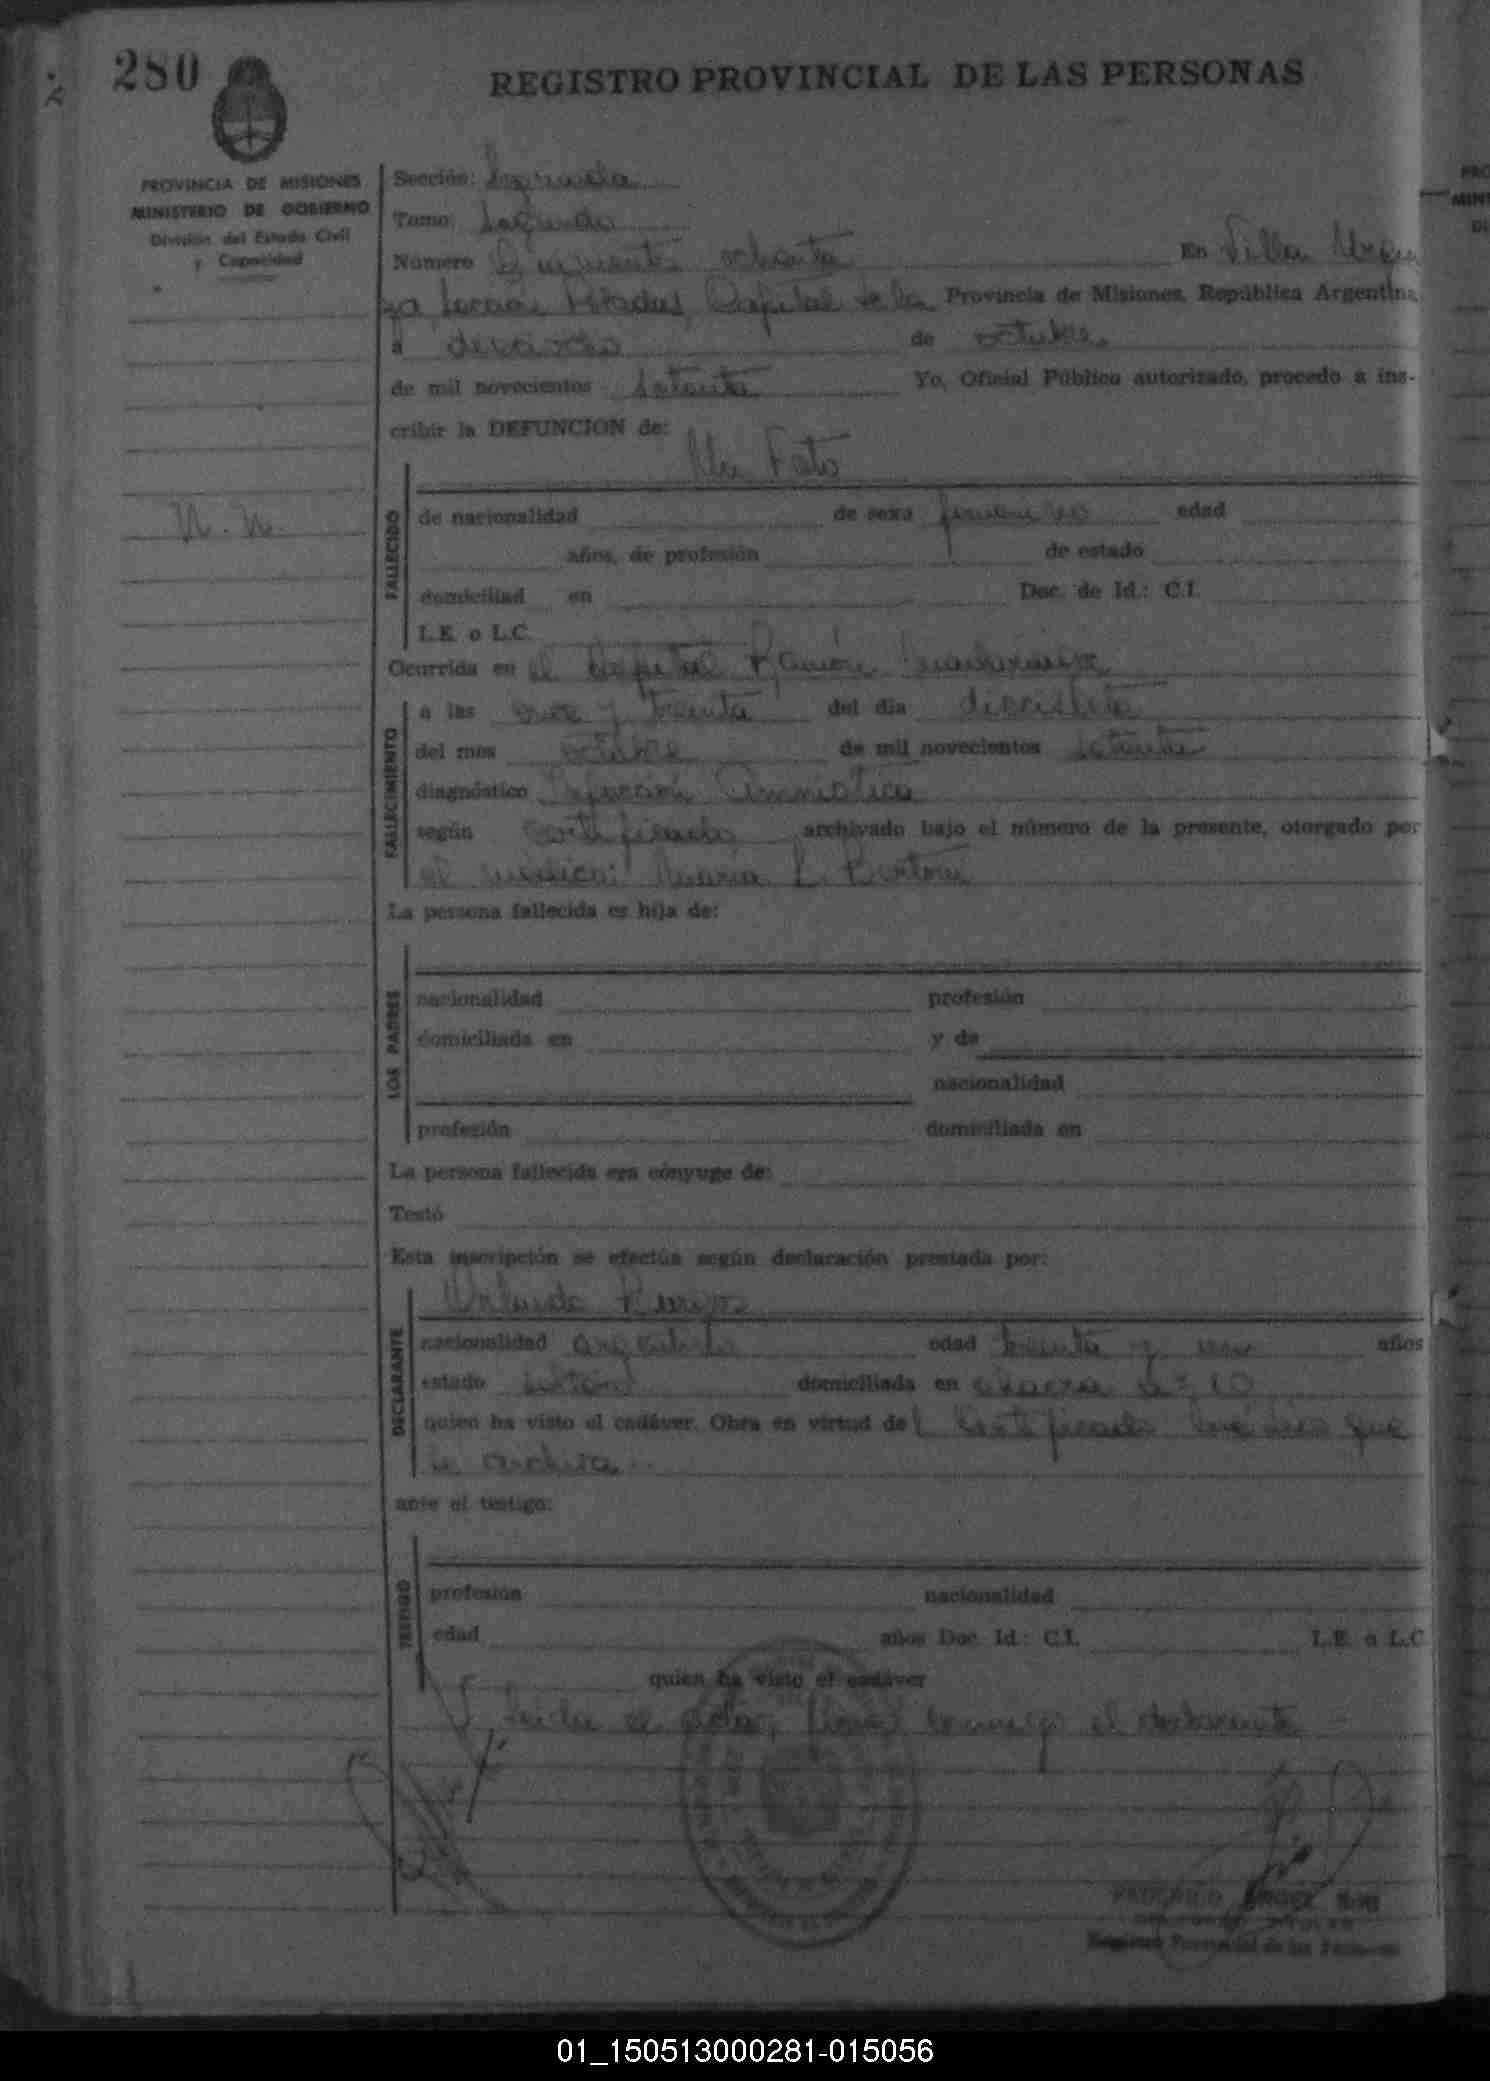 280
REGISTRO PROVINCIAL DE LAS PERSONAS
PROVINCIA DE MISIONES
MINISTERIO DE GOBIERNO
División del Estado Civil
y Capacidad
Sección:
Tomo: Segundo
Número ochenta En Villa Urqui
za, sección Posadas, Capital de la Provincia de Misiones, República Argentina,
a dieciocho de octubre
de mil novecientos setenta Yo, Oficial Público autorizado, procedo a ins-
cribir la DEFUNCION de:
Un Feto
N. N.
FALLECIDO
de nacionalidad de sexo femenino edad
años, de profesión de estado
domiciliad en Doc. de Id.: C.I.
L.E. o L.C.
Ocurrida en el Hospital Ramón
FALLECIMIENTO
a las once y treinta del día diecisiete
del mes octubre de mil novecientos setenta
diagnóstico Infección Amniótica
según certificado archivado bajo el número de la presente, otorgado por
el médico: María L. Bertoni
La persona fallecida es hija de:
LOS PADRES
nacionalidad profesión
domiciliada en y de
nacionalidad
profesión domiciliada en
La persona fallecida era cónyuge de:
Testó
Esta inscripción se efectúa según declaración prestada por:
DECLARANTE
Orlando
nacionalidad argentino edad treinta y un años
estado soltero domiciliada en chacra nº 10
quien ha visto el cadáver. Obra en virtud del certificado médico que
se archiva
ante el testigo:
TESTIGO
profesión nacionalidad
edad años Doc. Id.: C.I. L.E. o L.C.
quien ha visto el cadáver
Leída el acta, firma conmigo el declarante
FEDERICO ANGEL
Registro Provincial de las Personas
01_150513000281-015056